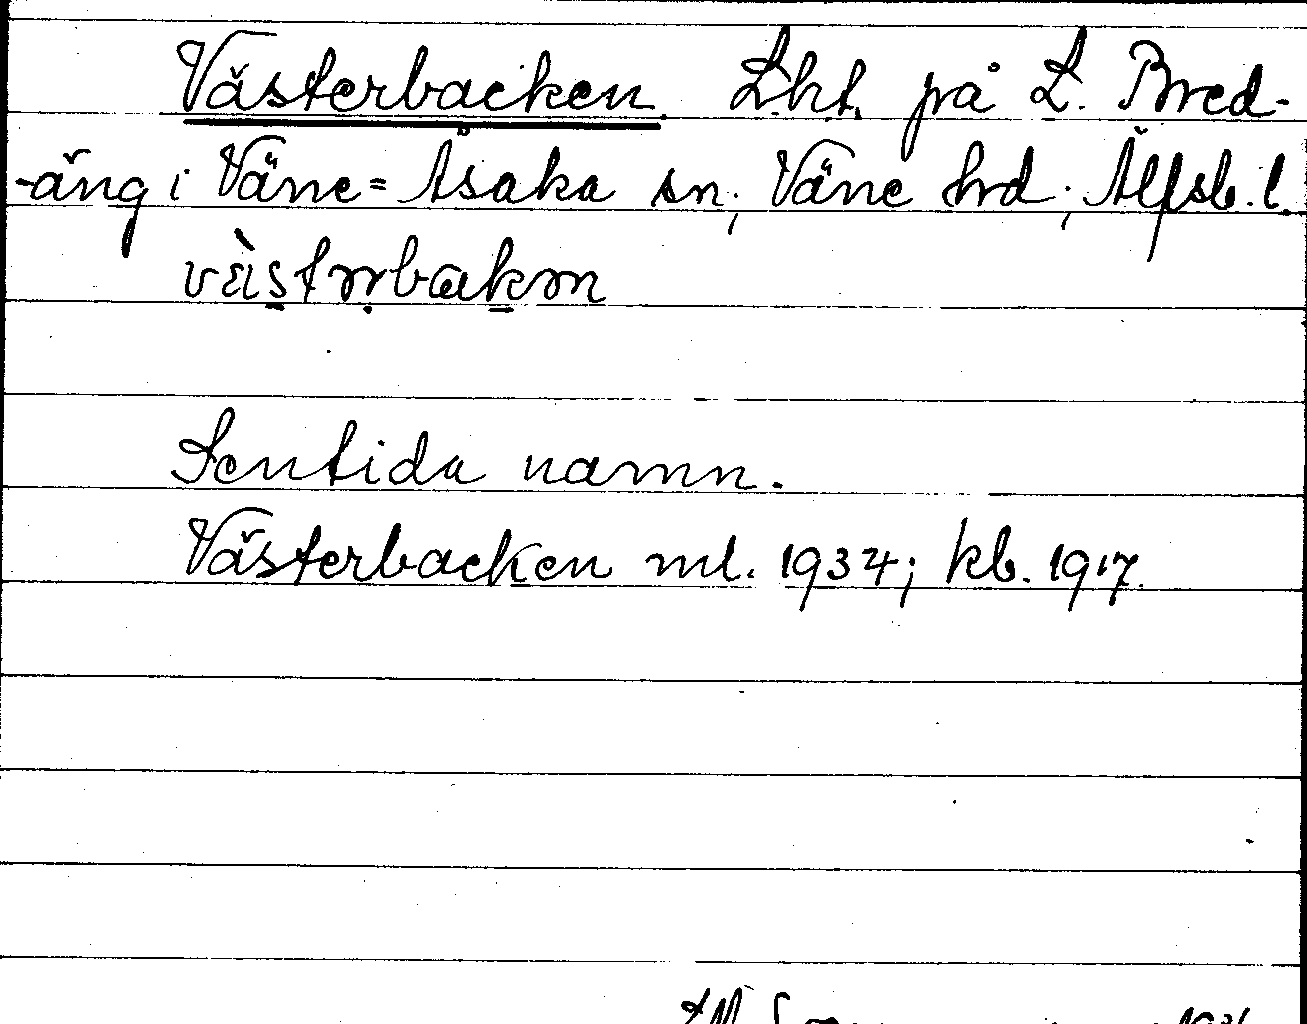 Västerbacken. Lht. på L. Bred-
-äng i Väne=Åsaka sn; Väne hrd; Älfsb. l.
Sentida namn.
Västerbacken ml. 1934; kb. 1917.